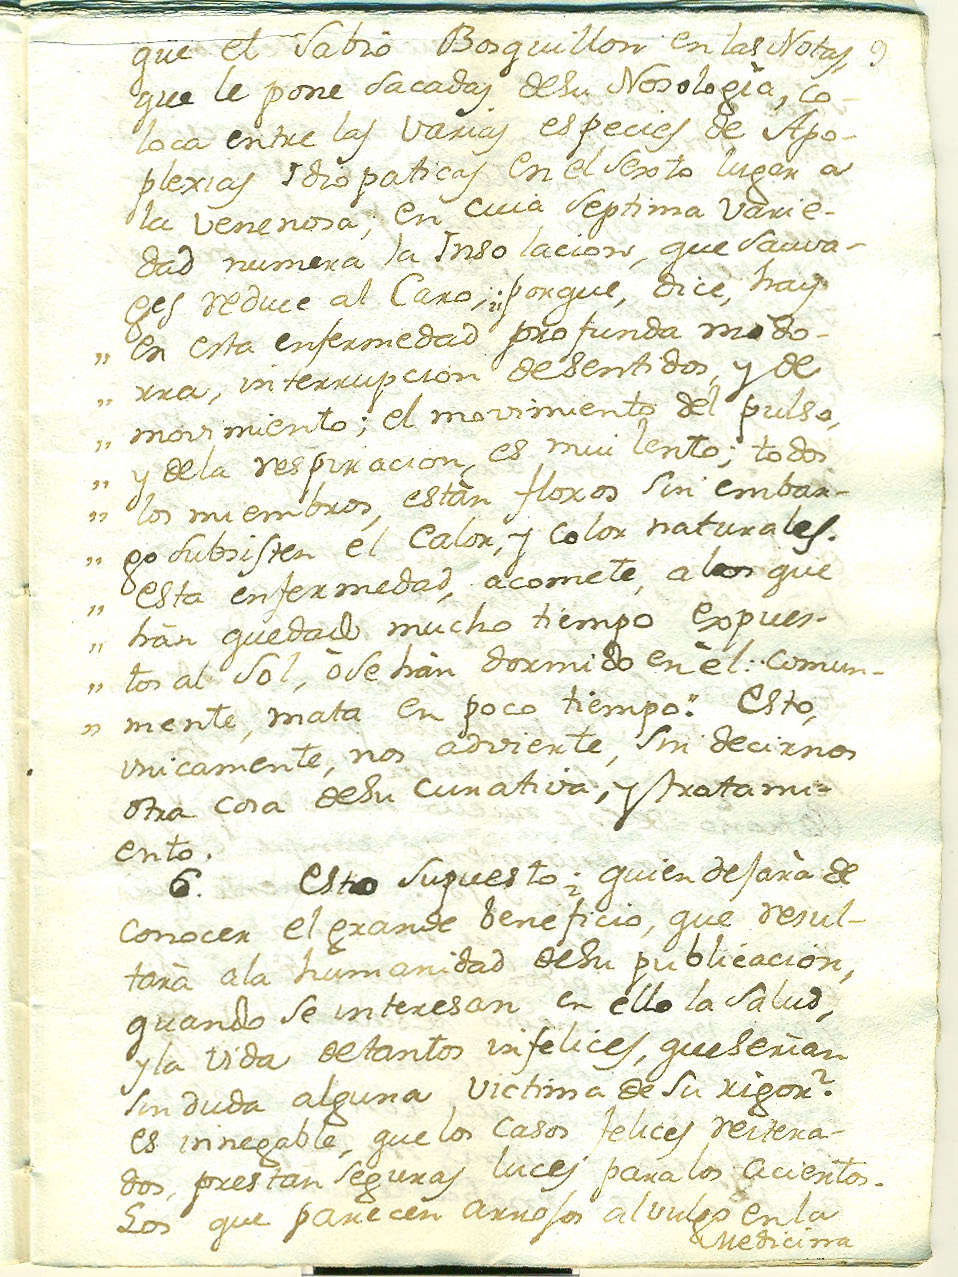 que el Sabio Bosquillon en las Notas, 9
que le pone sacadas desu Nosologìa, co-
loca entre las varias especies de Apo-
plexias Idiopaticas en el sexto lugar a
la venenosa; en cuia septima varie-
dad numera la Insolacion, que Sauva-
ges reduce al Caro; porque, dice, hay
„ en esta enfermedad profunda modo-
„ rra, interrupcion desentidos, y de
„ movimiento; el movimiento del pulso,
„ y dela respiracion, es mui lento; todos
„ los miembros, estàn floxos sin embar-
„ go subsisten el Calor, y color naturales.
„ esta enfermedad, acomete, a los que
„ hàn quedado mucho tiempo expues-
„ tos al Sol, òse hàn dormido en èl: comun-
„ mente, mata en poco tiempo." Esto,
unicamente, nos advierte, sin decirnos
otra cosa desu curativa, y tratami-
ento.
6. Esto supuesto ¿ quien dejarà de
conocer el grande beneficio, que resul-
tarà ala humanidad desu publicacion,
quando se interesan en ello la salud,
y la vida detantos infelices, que serian
sin duda alguna victima de su rigor?
es innegable, que los casos felices reitera-
dos, prestan seguras luces para los aciertos.
Los que parecen arrojos al vulgo en la
Medicina